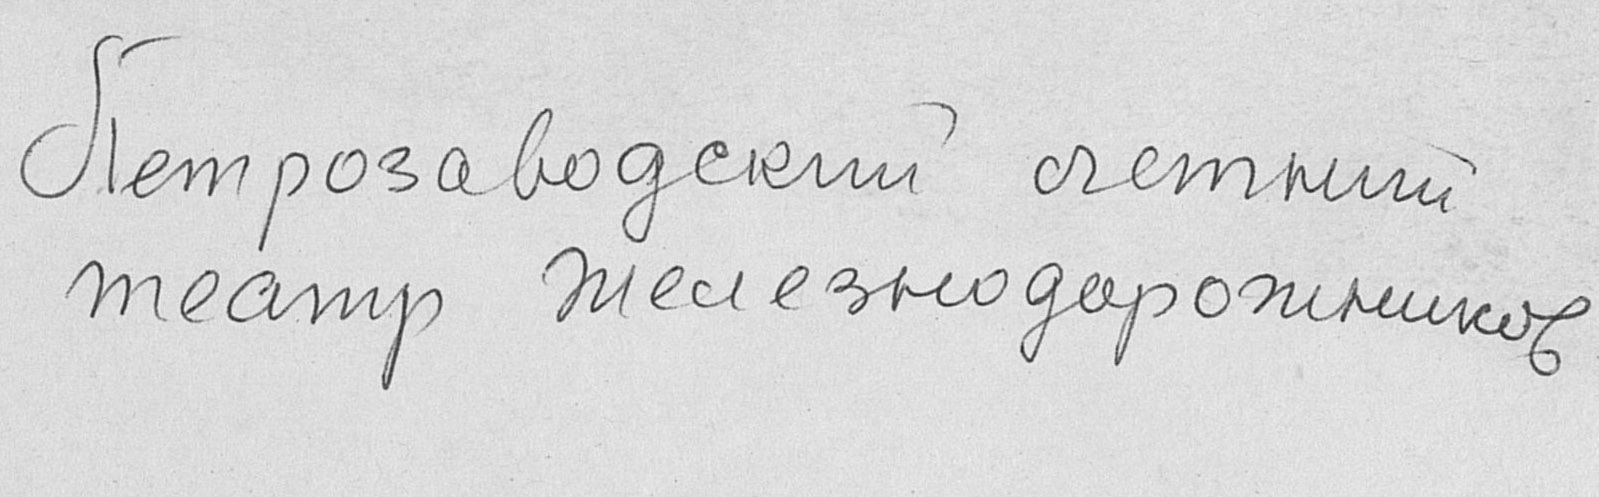 Петрозаводский летний
театр железнодорожников